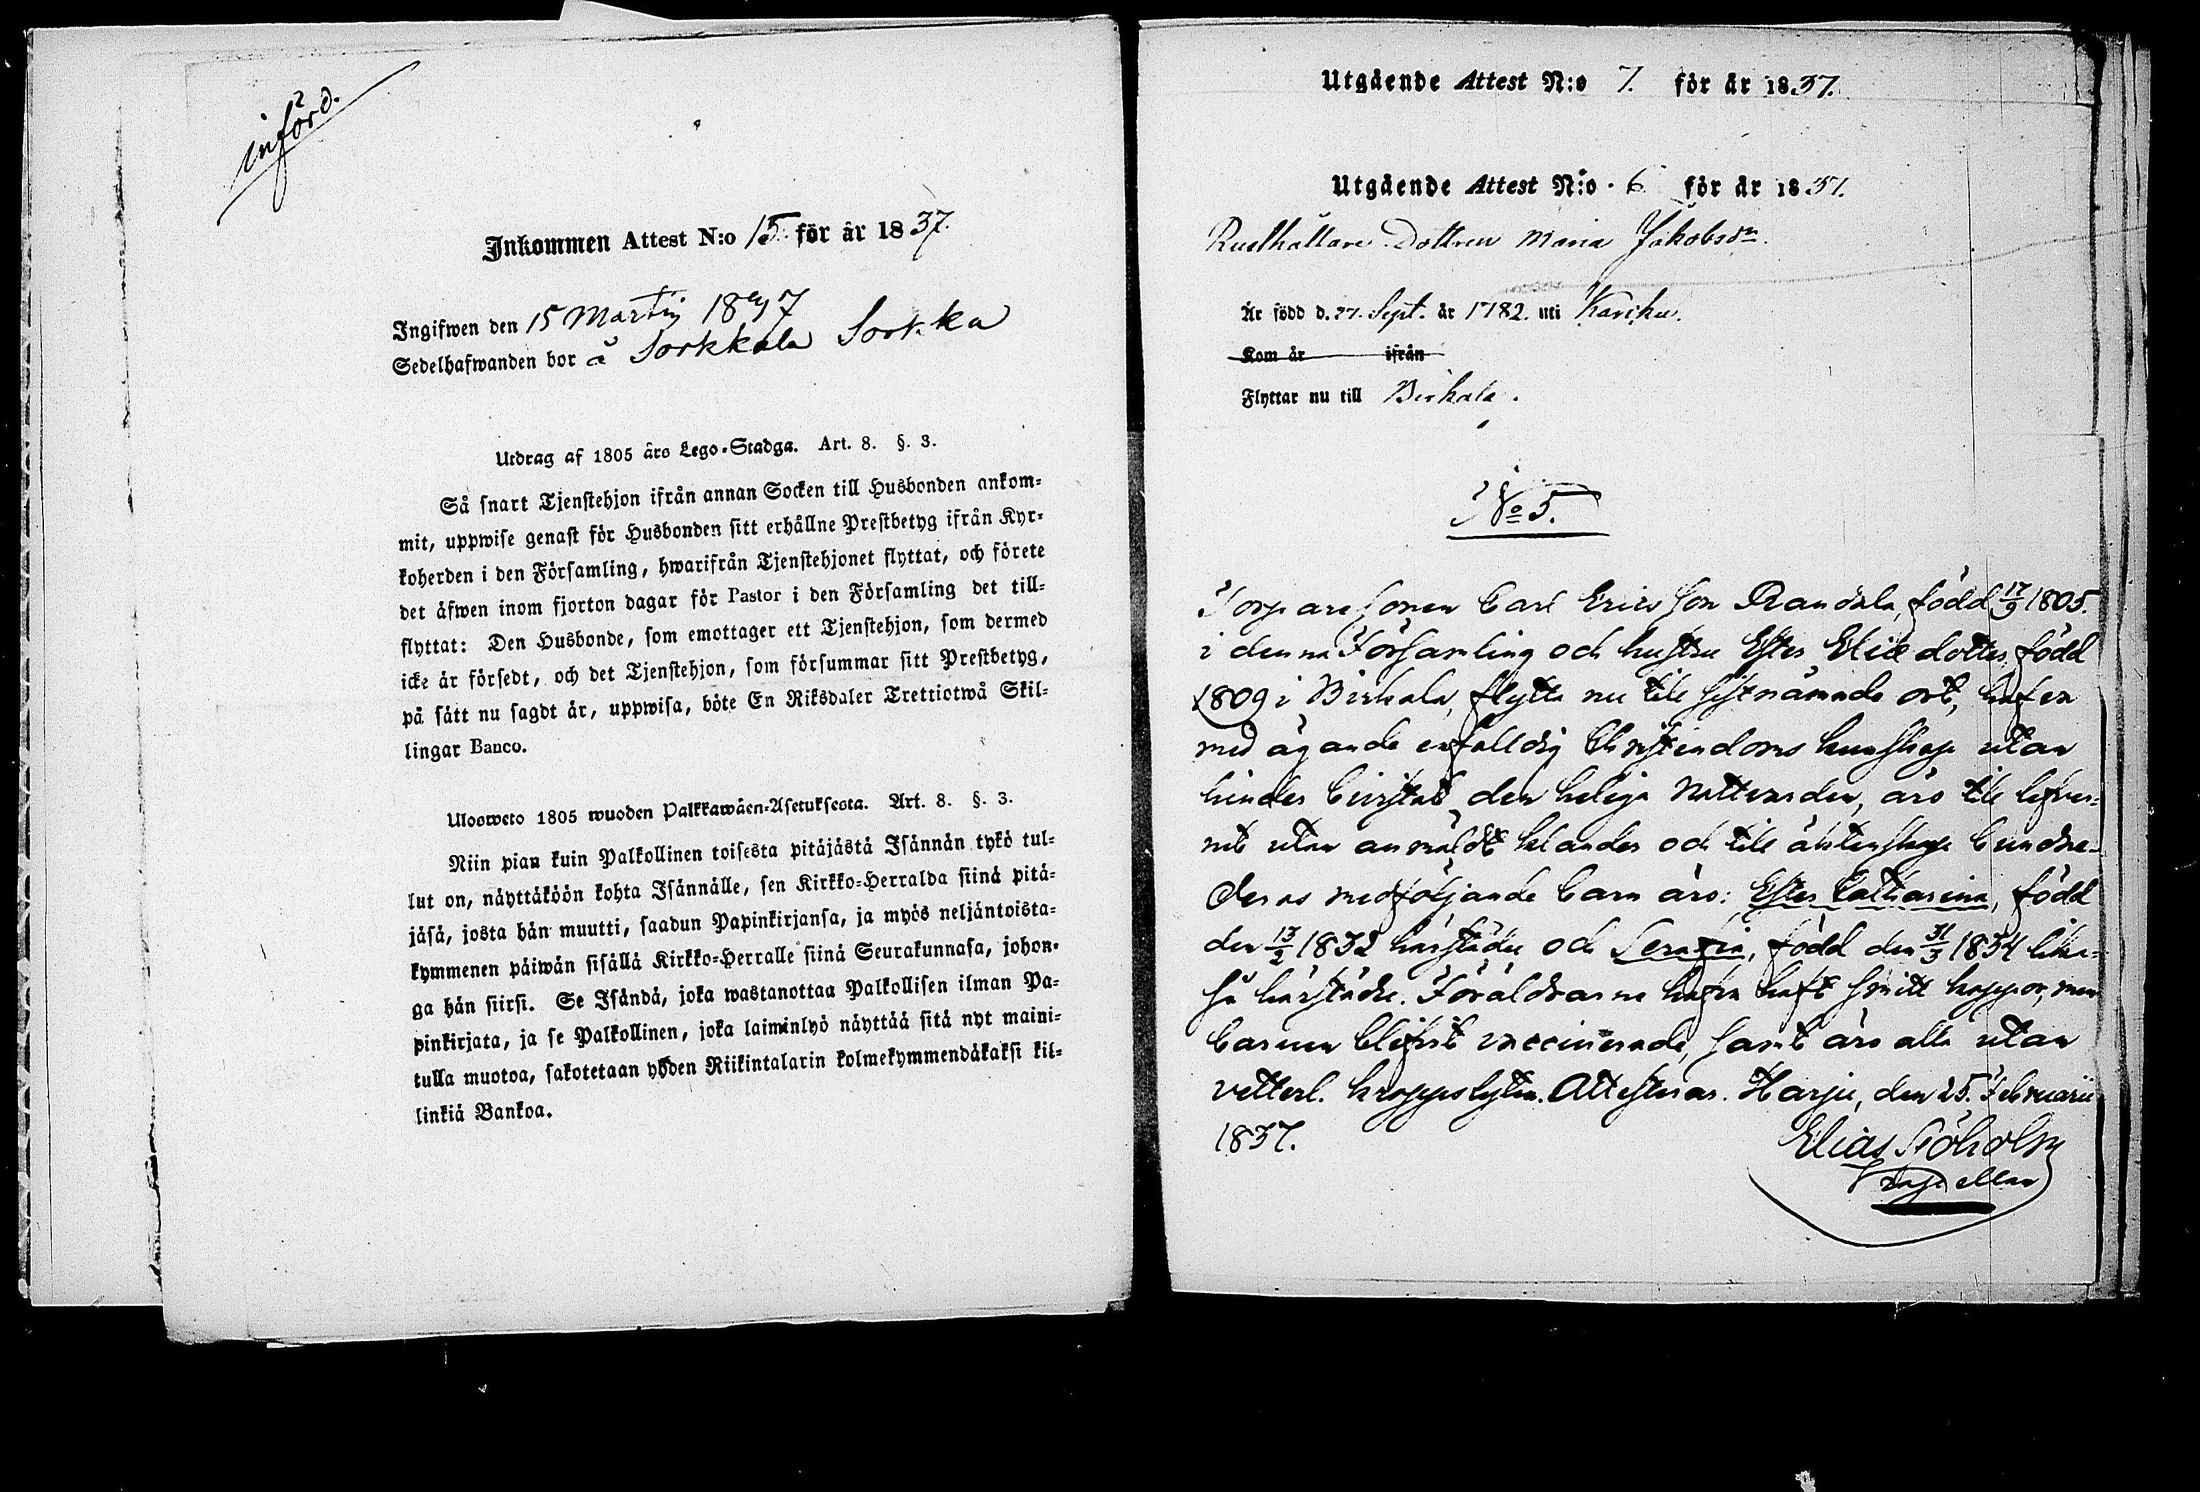 införd.
Inkommen Attest N:o 15. för år 1837.
Ingifwen den 15 Martii 1837
Sedelhafwanden bor å Sorkkala Sorkka
Utdrag af 1805 års Lego-Stadga. Art. 8. §. 3.
Så snart Tjenstehjon ifrån annan Socken till Husbonden ankom-
mit, uppwise genast för Husbonden sitt erhållne Prestbetyg ifrån Kyr-
koherden i den Församling, hwarifrån Tjenstehjonet flyttat, och förete
det äfwen inom fjorton dagar för Pastor i den Församling det till-
flyttat: Den Husbonde, som emottager ett Tjenstehjon, som dermed
icke är försedt, och det Tjenstehjon, som försummar sitt Prestbetyg,
på sätt nu sagdt är, uppwisa, böte En Riksdaler Trettiotwå Skil-
lingar Banco.
Ulosweto 1805 wuoden Palkkawäen-Asetuksesta. Art. 8. §. 3.
Niin pian kuin Palkollinen toisesta pitäjästä Isännän tykö tul-
lut on, näyttäköön kohta Isännälle, sen Kirkko-Herralda siinä pitä-
jäsä, josta hän muutti, saadun Papinkirjansa, ja myös neljäntoista-
kymmenen päiwän sisällä Kirkko-Herralle siinä Seurakunnasa, johon-
ga hän siirsi. Se Isändä, joka wastanottaa Palkollisen ilman Pa-
pinkirjata, ja se Palkollinen, joka laiminlyö näyttää sitä nyt maini-
tulla muotoa, sakotetaan yhden Riikintalarin kolmekymmendäkaksi kil-
linkiä Bankoa.
Utgående Attest N:o 7. för år 1837.
Utgående Attest N:o 6 för år 1837.
Rusthållare Dottren Maria Jakobsdr.
Är född d. 27. Sept. år 1782. uti Karku.
Kom år ifrån
Flyttar nu till Birkala.
No 5.
Torpare sonen Carl Ericsson, född 17/9 1805.
i denna Församling och hustru Ester dotter, född
1809 i Birkala, flytta nu till sistnämnde ort, hafva
med ägande enfaldig Christendoms kunskap utan
hinder bevistat den heliga Nattvarden, äro till lefver-
net utan anmäldt klander och till äktenskap bundne.
Deras medföljande barn äro: Ester Catharina, född
den 13/2 1832 härstädes och Serafia, född den 31/3 1834 lika-
så härstädes. Föräldrarne hafva haft smitt koppor, men
barnen blifvit vaccinerade, samt äro alla utan
vetterl. kroppslyten. Attesteras. Harju, den 25. Februarii
1837.
Elias
Kapellan